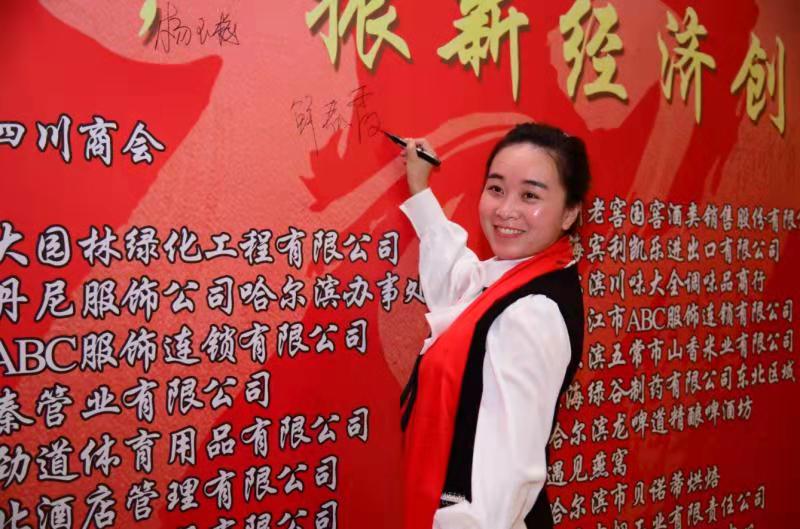 振新经济创
四川商会
大园林绿化工程有限公司
丹尼服饰公司哈尔滨办事处
ABC服饰连锁有限公司
秦管业有限公司
劲道体育用品有限公司
酒店管理有限公司
有限公司
老窖国窖酒类销售股份有限
宾利凯乐进出口有限公司
滨川味大全调味品商行
江市ABC服饰连锁有限公司
滨五常市山香米业有限公司
海绿谷制药有限公司东北区域
哈尔滨龙啤道精酿啤酒坊
遇见燕窝
哈尔滨市贝诺蒂烘焙
工业有限责任公司